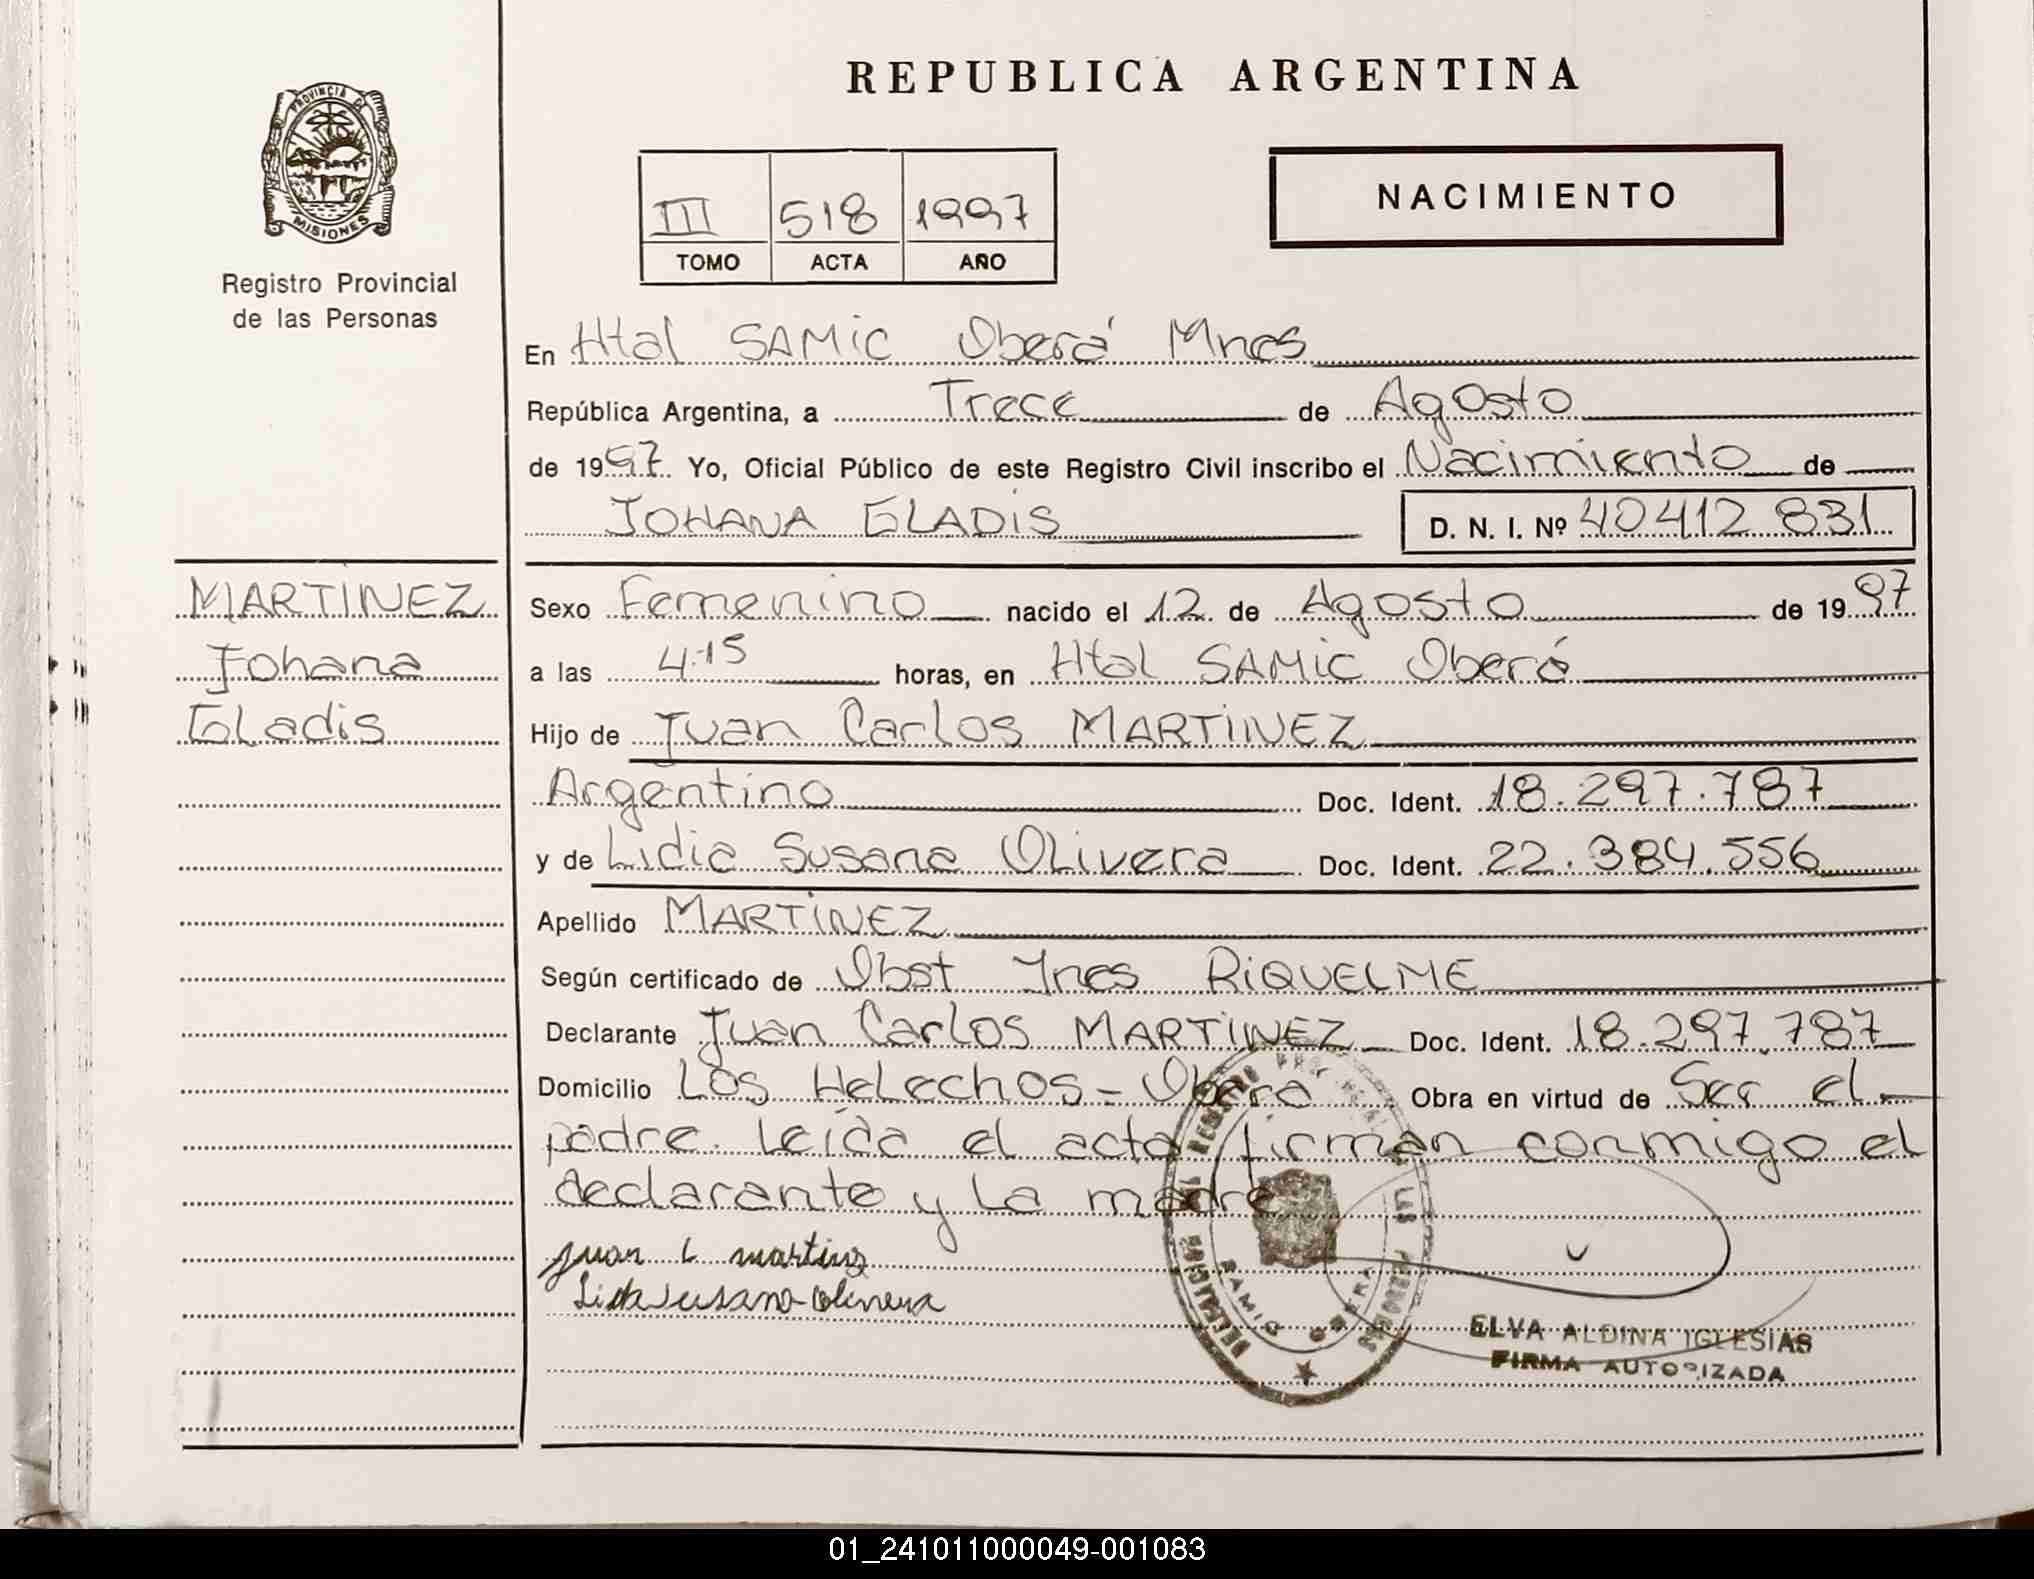 REPUBLICA ARGENTINA
PROVINCIA DE
MISIONES
Registro Provincial
de las Personas
III 518 1997
TOMO ACTA AÑO
NACIMIENTO
En Htal SAMIC Oberá Mnes
República Argentina, a Trece de Agosto
de 1997 Yo, Oficial Público de este Registro Civil inscribo el Nacimiento de
JOHANA GLADIS D. N. I. Nº 40412 831
MARTINEZ
Johana
Gladis
Sexo Femenino nacido el 12 de Agosto de 1997
a las 4.15 horas, en Htal SAMIC Oberá
Hijo de Juan Carlos MARTINEZ
Argentino Doc. Ident. 18.297.787
y de Lidia Susana Olivera Doc. Ident. 22.384.556
Apellido MARTINEZ
Según certificado de Obst Ynes RIQUELME
Declarante Juan Carlos MARTINEZ Doc. Ident. 18.297.787
Domicilio Los Helechos - Obera Obra en virtud de Ser el
padre. Leída el acta firman conmigo el
declarante y la madre
juan C martinz
Lidia Susana Olivera
SAMIC OBERA
ELVA ALDINA IGLESIAS
FIRMA AUTORIZADA
01_241011000049-001083